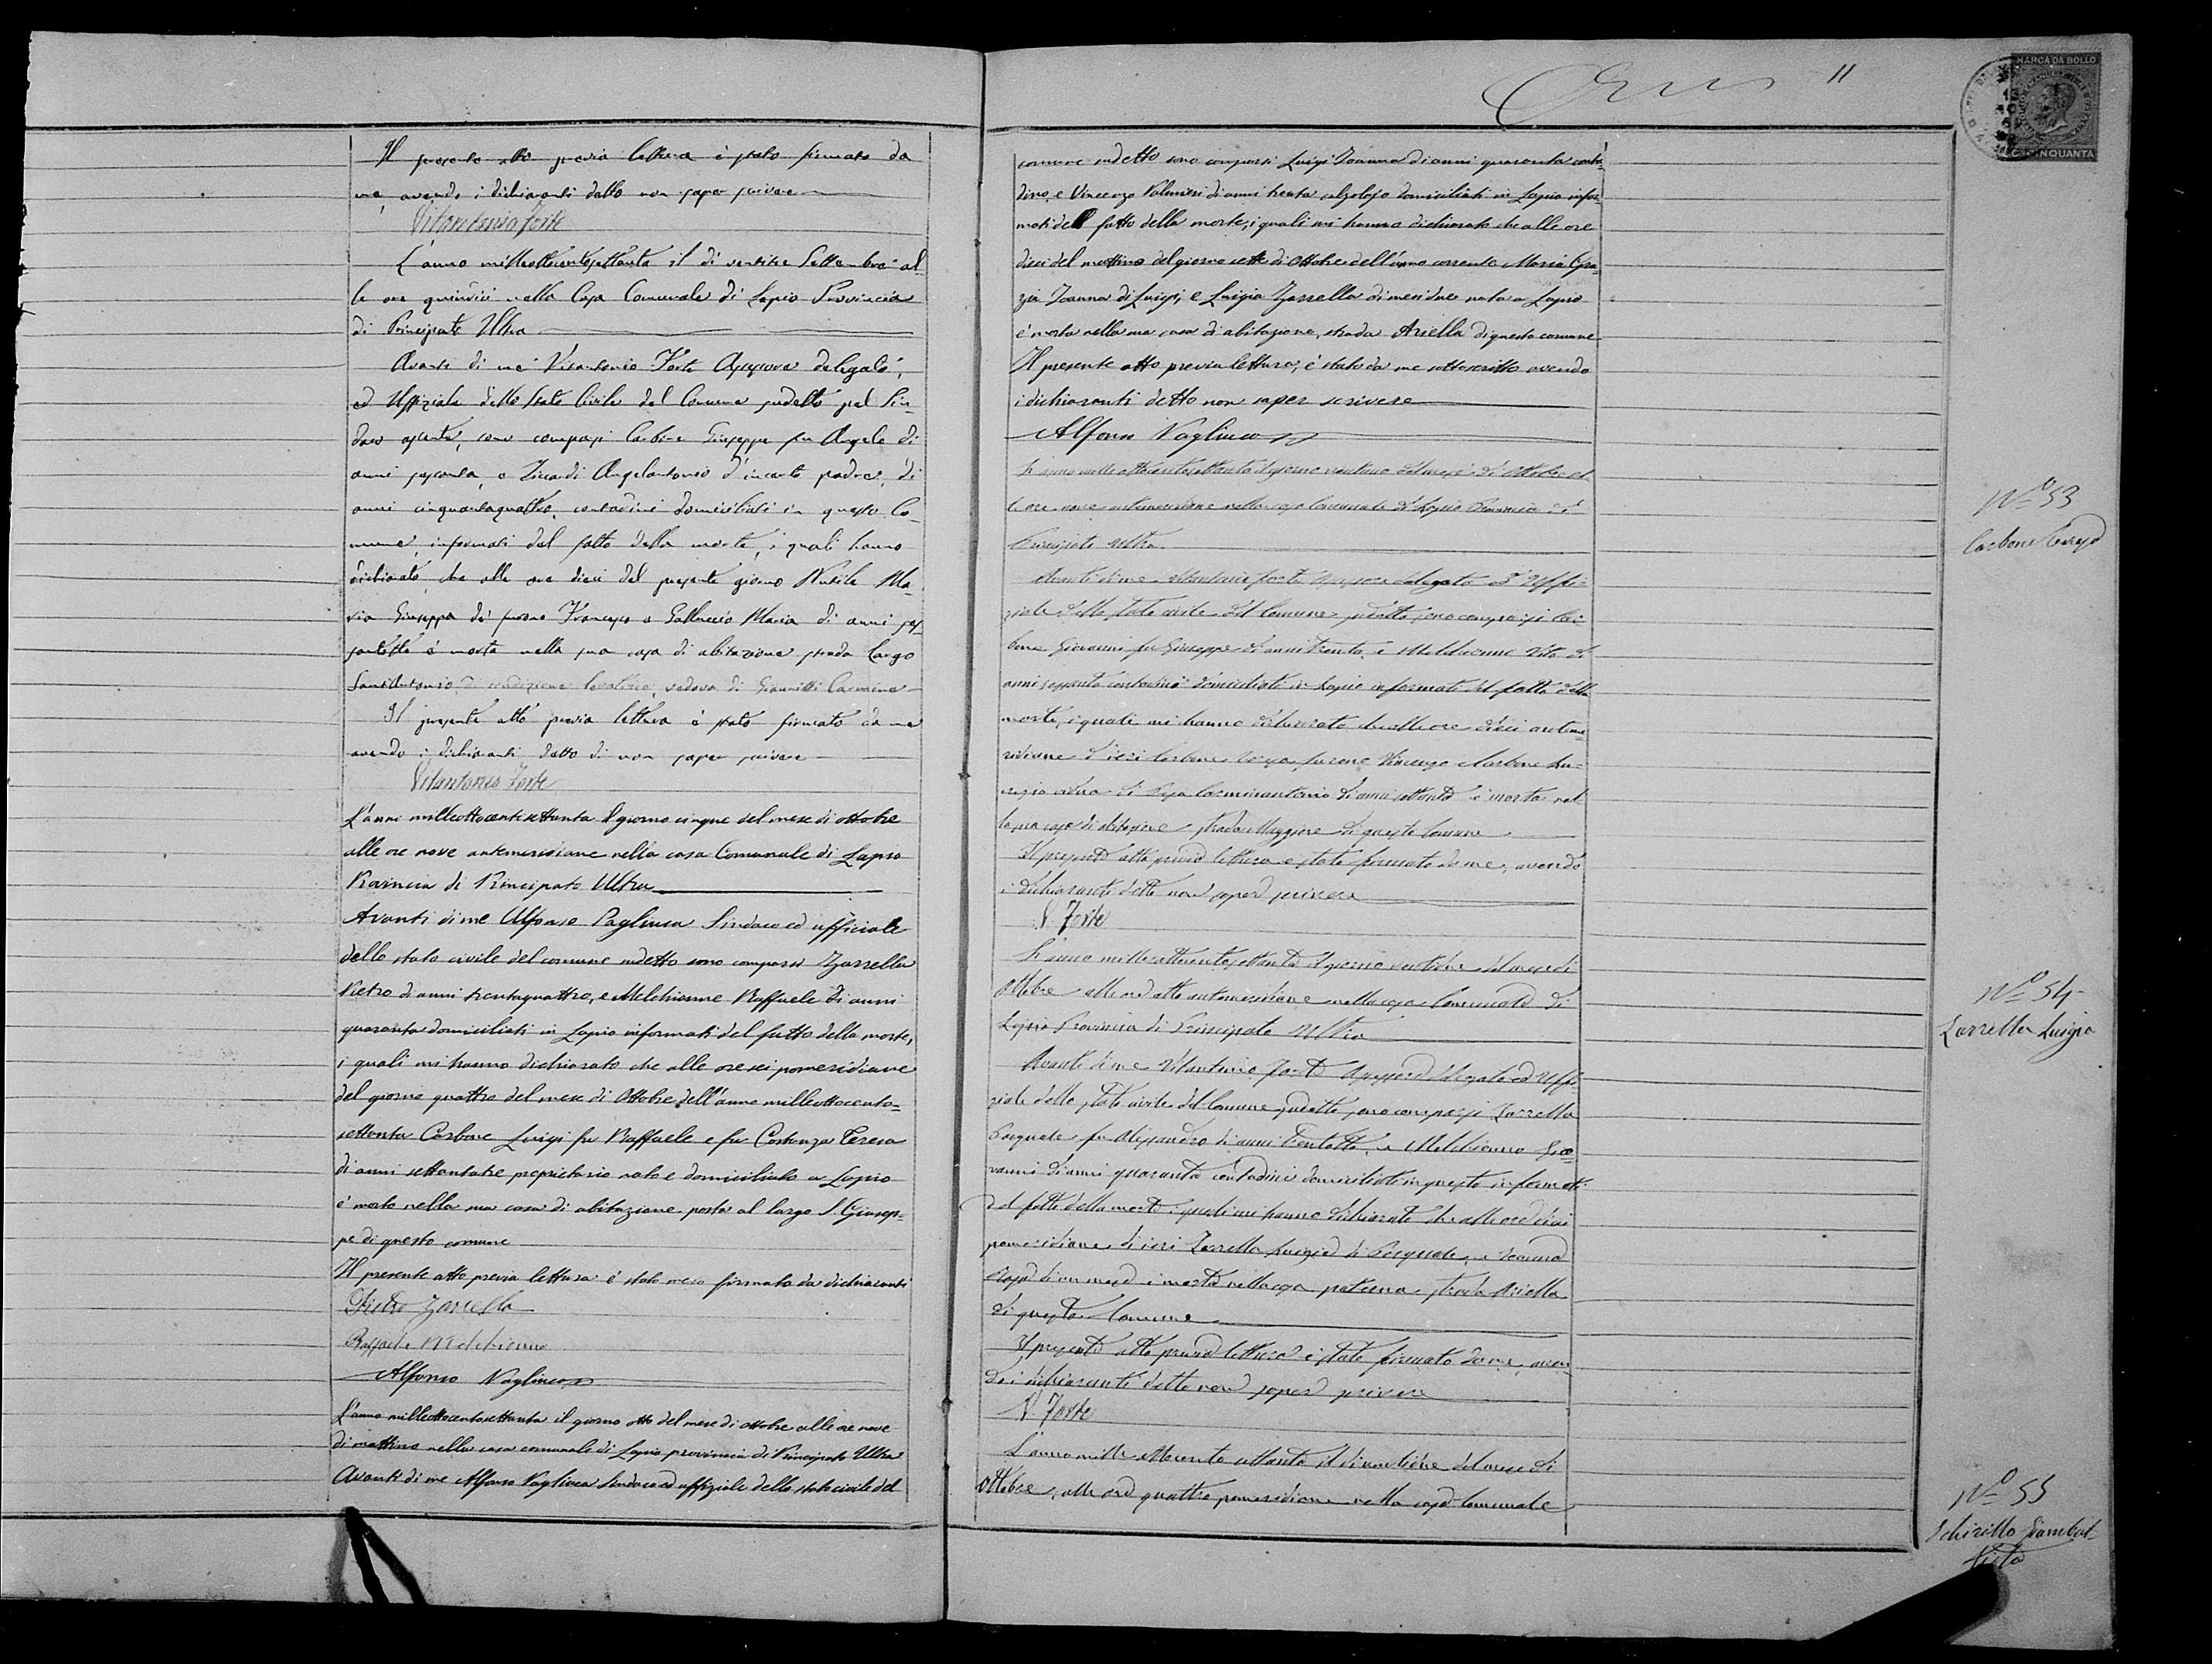 Il presente atto previa lettura è stato firmato da
me, avendo i dichiaranti detto non saper scrivere
Vitantonio Forte
L'anno milleottocentosettanta il dì ventitre Settembre al-
le ore quindici nella Casa Comunale di Lapio Provincia
di Principato Ultra
Avanti di me Vitantonio Forte Assessore delegato,
ed Uffiziale dello Stato Civile del Comune sudetto pel Sin-
daco assente, sono comparsi Carbone Giuseppe fu Angelo di
anni sessanta, e Ziccardi Angelantonio d'incerto padre, di
anni cinquantaquattro, contadini domiciliati in questo Co-
mune, informati del fatto della morte, i quali hanno
dichiarato, che alle ore dieci del presente giorno Ma-
ria Giuseppa di furono Francesco e Galluccio Maria di anni ses-
santotto è morta nella sua casa di abitazione strada Largo
Sant'Antonio, di condizione vedova di Giannitti Carmine
Il presente atto previa lettura è stato firmato da me
avendo i dichiaranti detto di non saper scrivere
Vitantonio Forte
L'anno milleottocentosettanta il giorno cinque del mese di ottobre
alle ore nove antemeridiane nella casa Comunale di Lapio
Provincia di Principato Ultra
Avanti di me Alfonso Pagliuca Sindaco ed ufficiale
dello stato civile del comune sudetto sono comparsi Zarrella
Pietro di anni trentaquattro, e Melchionne Raffaele di anni
quaranta domiciliati in Lapio informati del fatto della morte,
i quali mi hanno dichiarato che alle ore sei pomeridiane
del giorno quattro del mese di Ottobre dell'anno milleottocento=
settanta Carbone Luigi fu Raffaele e fu Costanza Teresa
di anni settantatre proprietario nato e domiciliato a Lapio
è morto nella sua casa di abitazione posta al largo S. Giusep-
pe di questo comune
Il presente atto previa lettura è stato meco firmato da dichiaranti
Pietro Zarrella
Raffaele Melchionne
Alfonso Pagliuca
L'anno milleottocentosettanta il giorno otto del mese di ottobre alle ore nove
di mattina nella casa comunale di Lapio provincia di Principato Ultra
Avanti di me Alfonso Pagliuca Sindaco ed uffiziale dello stato civile del
11
MARCA DA BOLLO
C. CINQUANTA
comune sudetto sono comparsi Luigi Ioanna di anni quaranta conta-
dino, e Vincenzo Palmieri di anni trenta calzolajo domiciliati in Lapio infor-
mati del fatto della morte, i quali mi hanno dichiarato che alle ore
dieci del mattino del giorno sette di Ottobre dell'anno corrente Maria Gra-
zia Ioanna di Luigi, e Luigia Zarrella di mesi due nata a Lapio
è morta nella sua casa di abitazione, strada Ariella di questo comune
Il presente atto previa lettura, è stato da me sottoscritto avendo
i dichiaranti detto non saper scrivere
Alfonso Pagliuca
L'anno mille ottocentosettanta il giorno ventuno del mese di Ottobre al-
le ore nove antimeridiane nella casa Comunale di Lapio Provincia di
Principato Ultra
Avanti di me Vitantonio Forte Assessore delegato ed Uffi-
ziale dello stato civile del Comune sudetto sono comparsi Car-
bone Giovanni fu Giuseppe di anni trenta, e Melchionne Vito di
anni sessanta contadini domiciliati in Lapio informati del fatto della
morte, i quali mi hanno dichiarato che alle ore dieci antime-
ridiane d'ieri Carbone furono Vincenzo e Carbone Lu-
crezia vedova di Carminantonio di anni settanta è morta nel-
la sua casa di abitazione strada Maggiore di questo Comune
Il presente atto previa lettura è stato firmato da me, avendo
i dichiaranti detto non saper scrivere
V. Forte
L'anno mille ottocentosettanta il giorno ventidue del mese di
Ottobre alle ore otto antimeridiane nella casa Comunale di
Lapio Provincia di Principato Ultra
Avanti di me Vitantonio Forte Assessore delegato ed Uffi-
ziale dello stato civile del Comune sudetto, sono comparsi Zarrella
Pasquale fu Alessandro di anni trentotto, e Melchionno Gio-
vanni di anni quaranta contadini domiciliati in questo informati
del fatto della morte, i quali mi hanno dichiarato che alle ore dieci
pomeridiane di ieri Zarrella Luigia di Pasquale, e Ioanna
di un mese è morta nella casa paterna strada Ariella
di questo Comune
Il presente atto previa lettura è stato firmato da me, aven-
do i dichiaranti detto non saper scrivere
V. Forte
L'anno mille ottocento settanta il dì ventidue del mese di
Ottobre, alle ore quattro pomeridiane nella casa Comunale
N.o 53
Carbone
N.o 54
Zarrella Luigia
N.o 55
Schirillo Giambat-
tista